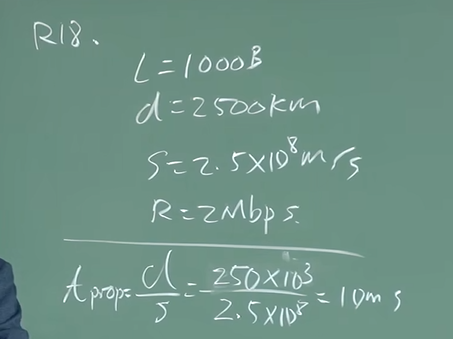 R18.
L=1000B
d=2500km
S=2.5×10⁸m/s
R=2Mbps.
d prop= d/s = 250×10³/2.5×10⁸ = 10ms